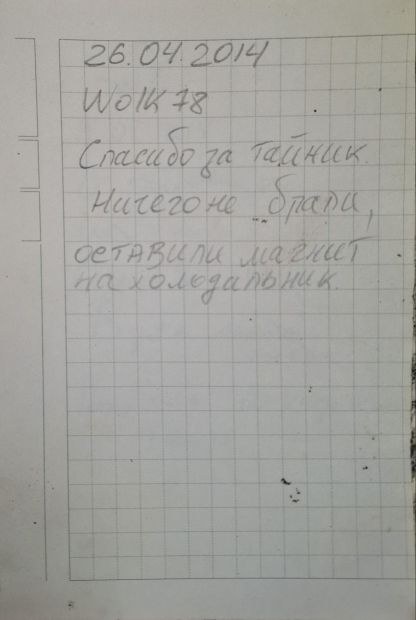 26.04.2014
Wolk 78
Спасибо за тайник.
Ничего не брали,
оставили магнит
на холодильник.